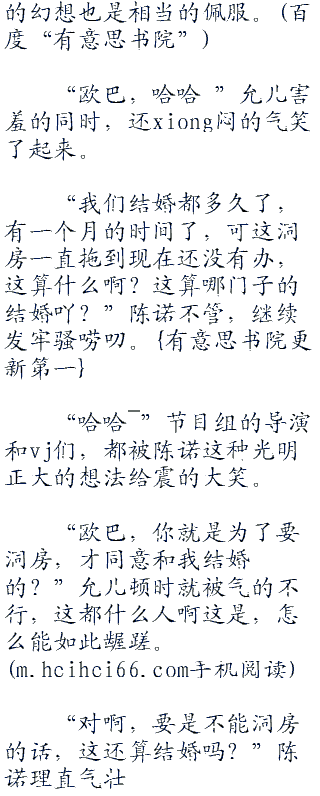 的幻想也是相当的佩服。(百
度“有意思书院”)
“欧巴，哈哈 ”允儿害
羞的同时，还xiong闷的气笑
了起来。
“我们结婚都多久了，
有一个月的时间了，可这洞
房一直拖到现在还没有办，
这算什么啊？这算哪门子的
结婚吖？”陈诺不管，继续
发牢骚唠叨。{有意思书院更
新第一}
“哈哈~”节目组的导演
和vj们，都被陈诺这种光明
正大的想法给震的大笑。
“欧巴，你就是为了要
洞房，才同意和我结婚
的？”允儿顿时就被气的不
行，这都什么人啊这是，怎
么能如此龌蹉。
(m.hcihci66.com手机阅读)
“对啊，要是不能洞房
的话，这还算结婚吗？”陈
诺理直气壮